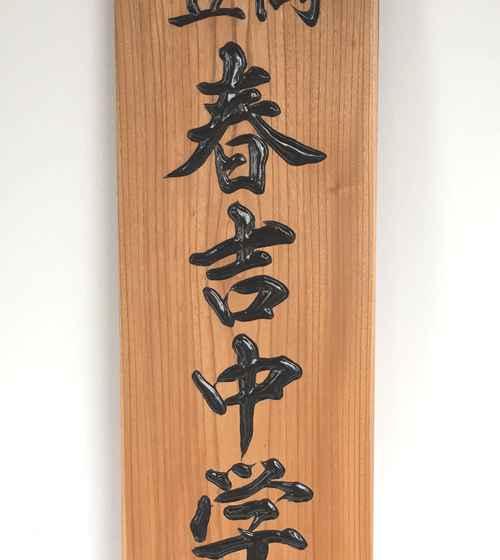 春吉中学